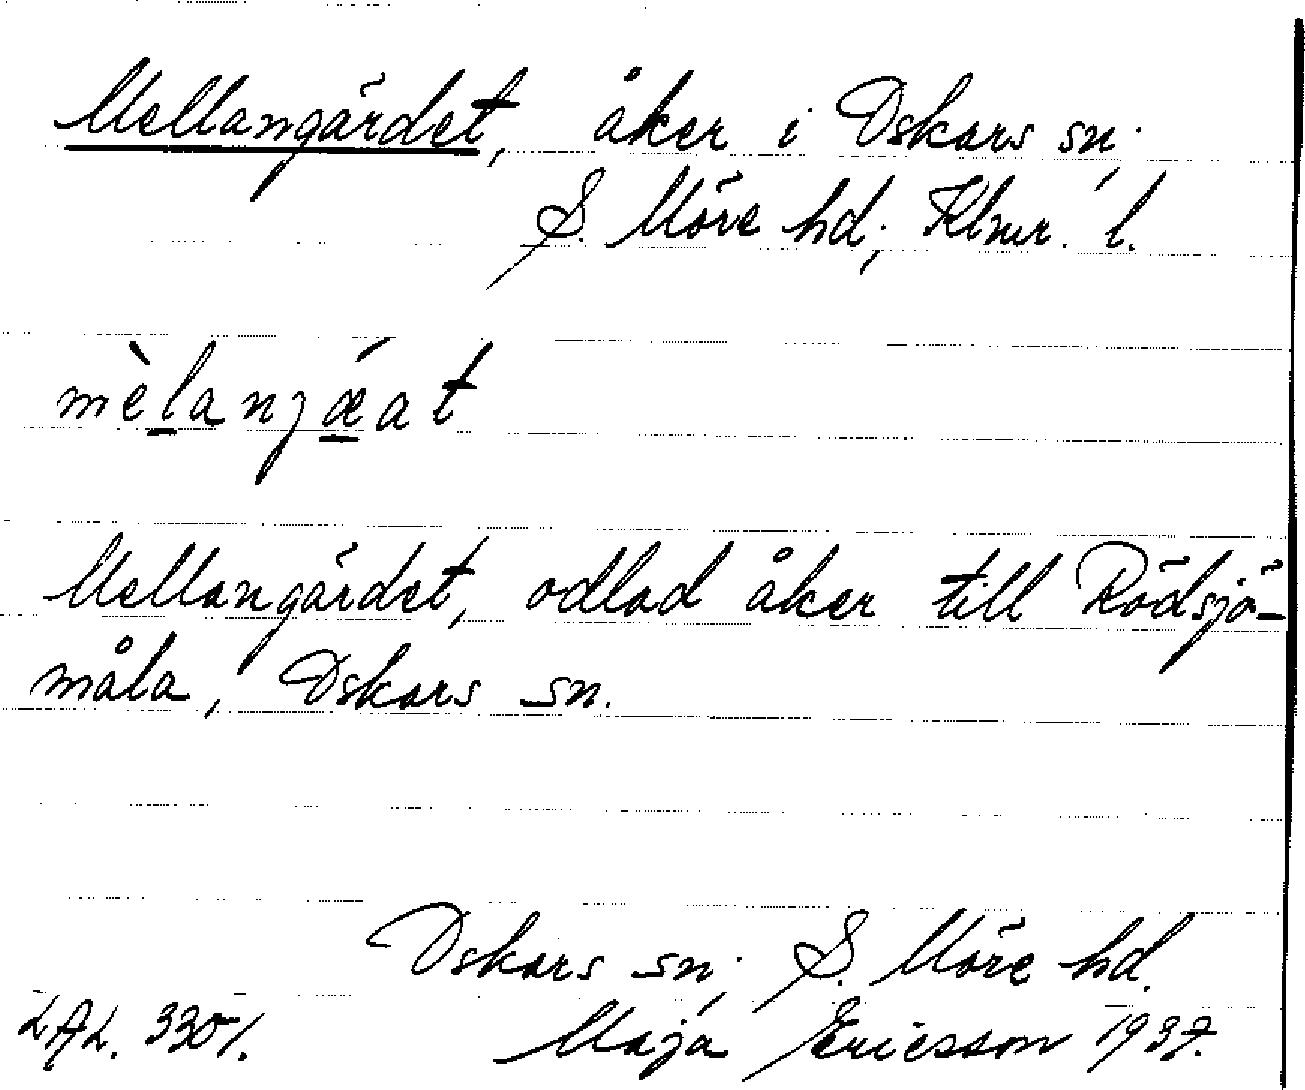 Mellangärdet, åker i Oskars sn;
S. Möre hd; Klmr. l.
mèlanɡǽat
Mellangärdet, odlad åker till Rödsjö-
måla, Oskars sn.
Oskars sn; S. Möre hd.
LAL. 3301. Maja Ericsson 1937.